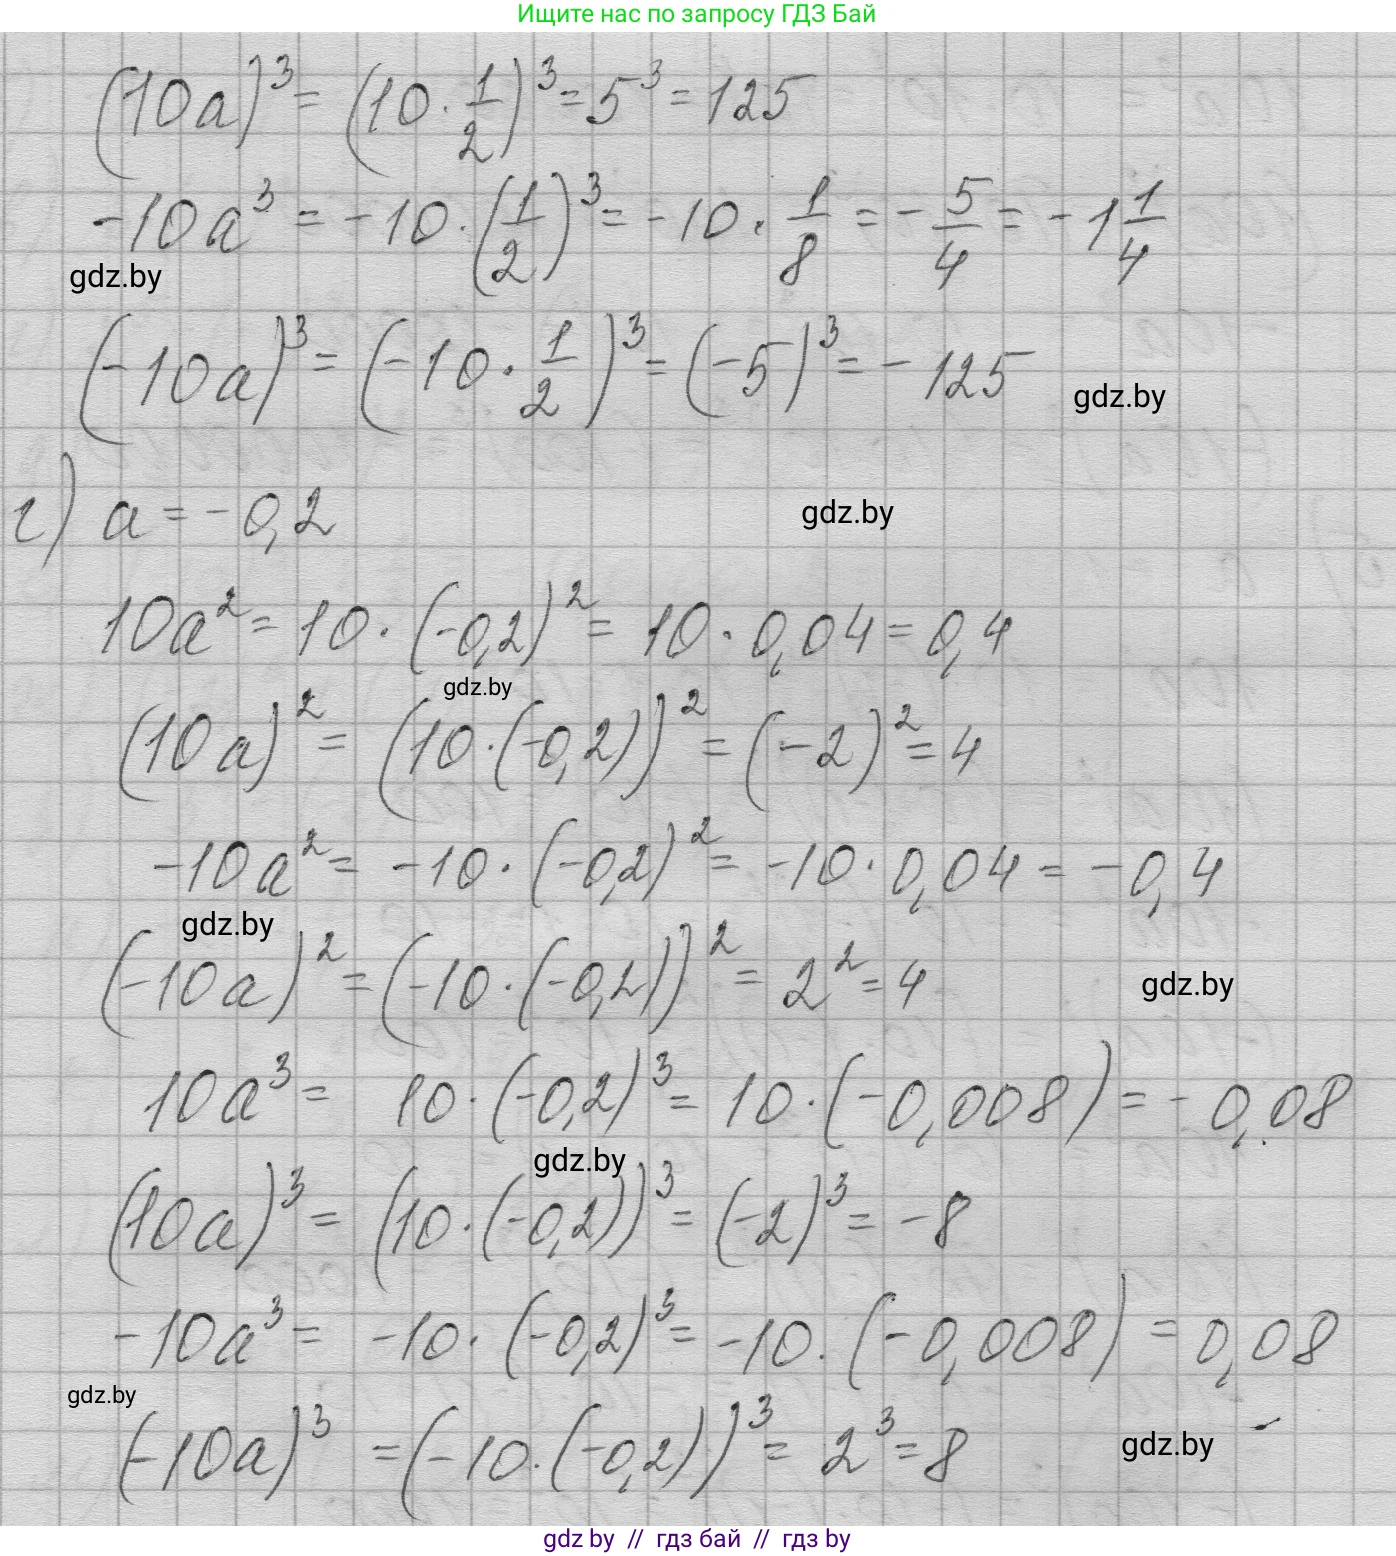 Ищите нас по запросу ГДЗ Бай
(10a)³ = (10 · 1/2)³ = 5³ = 125
-10a³ = -10 · (1/2)³ = -10 · 1/8 = -5/4 = -1 1/4
gdz.by
(-10a)³ = (-10 · 1/2)³ = (-5)³ = -125
gdz.by
г) a = -0,2
gdz.by
10a² = 10 · (-0,2)² = 10 · 0,04 = 0,4
gdz.by
(10a)² = (10 · (-0,2))² = (-2)² = 4
-10a² = -10 · (-0,2)² = -10 · 0,04 = -0,4
gdz.by
(-10a)² = (-10 · (-0,2))² = 2² = 4
gdz.by
10a³ = 10 · (-0,2)³ = 10 · (-0,008) = -0,08
gdz.by
(10a)³ = (10 · (-0,2))³ = (-2)³ = -8
-10a³ = -10 · (-0,2)³ = -10 · (-0,008) = 0,08
gdz.by
(-10a)³ = (-10 · (-0,2))³ = 2³ = 8
gdz.by
gdz by // гдз бай // гдз by